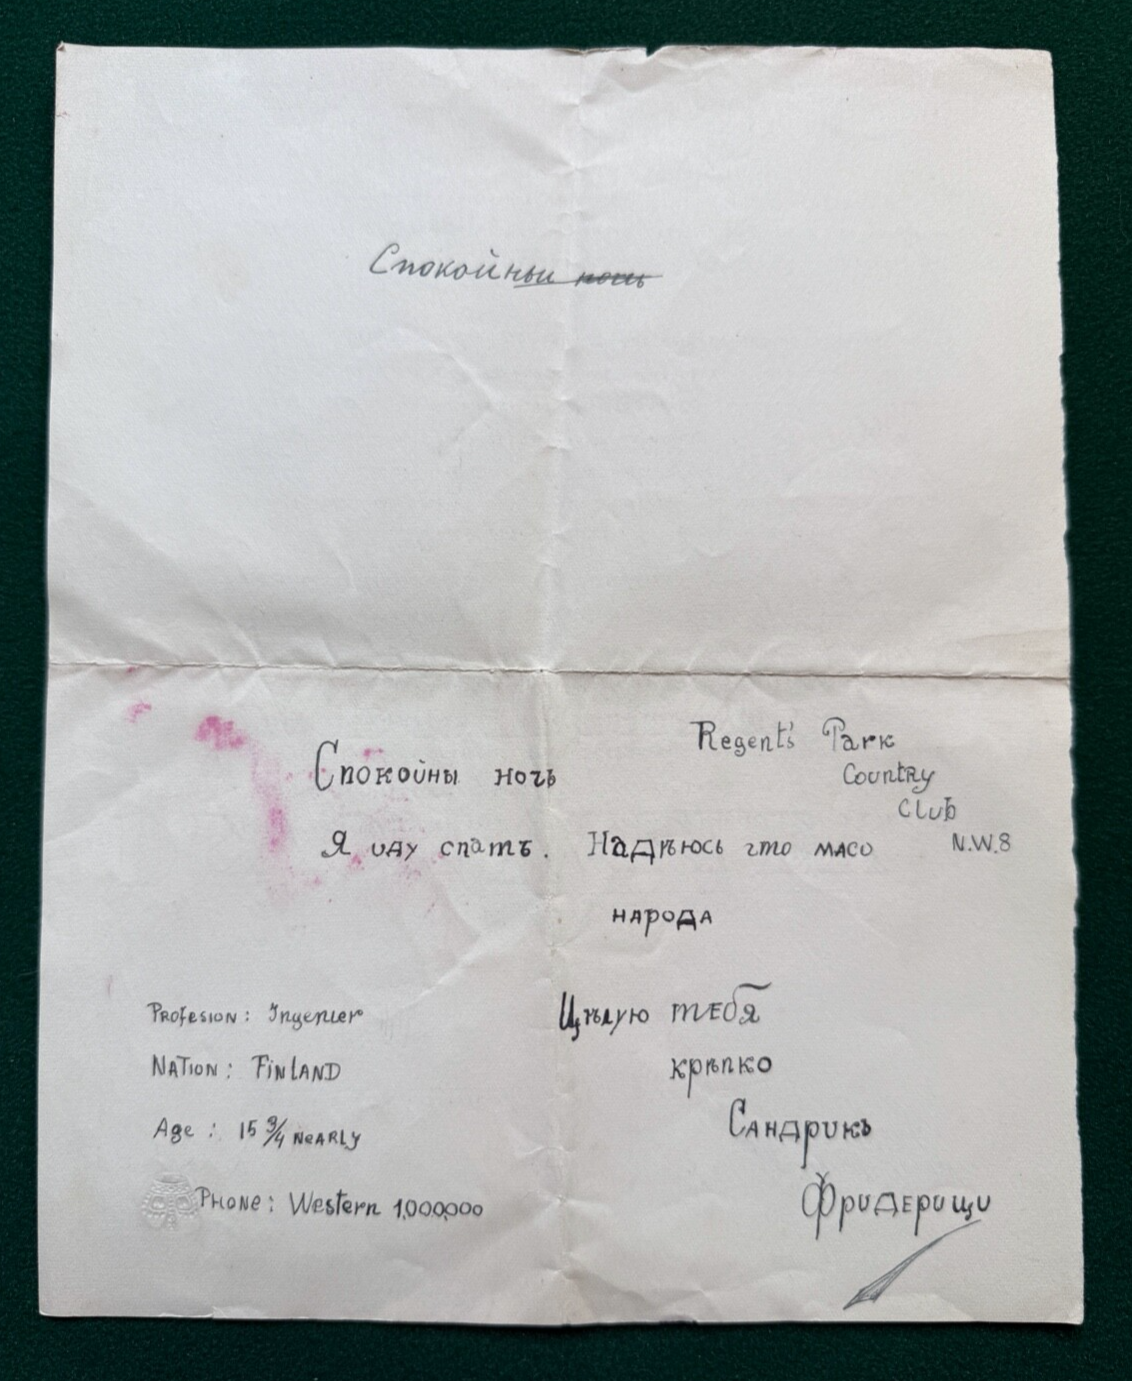 Спокойны ночь
Regent's Park
Country
Club
N.W.8
Спокойны ночь
Я иду спать. Надѣюсь что масо
народа
Profesion: Ingenier
Nation: Finland
Age: 15 3/4 nearly
Phone: Western 1,000,000
Цѣлую тебя
крѣпко
Сандрикъ
Фридерици